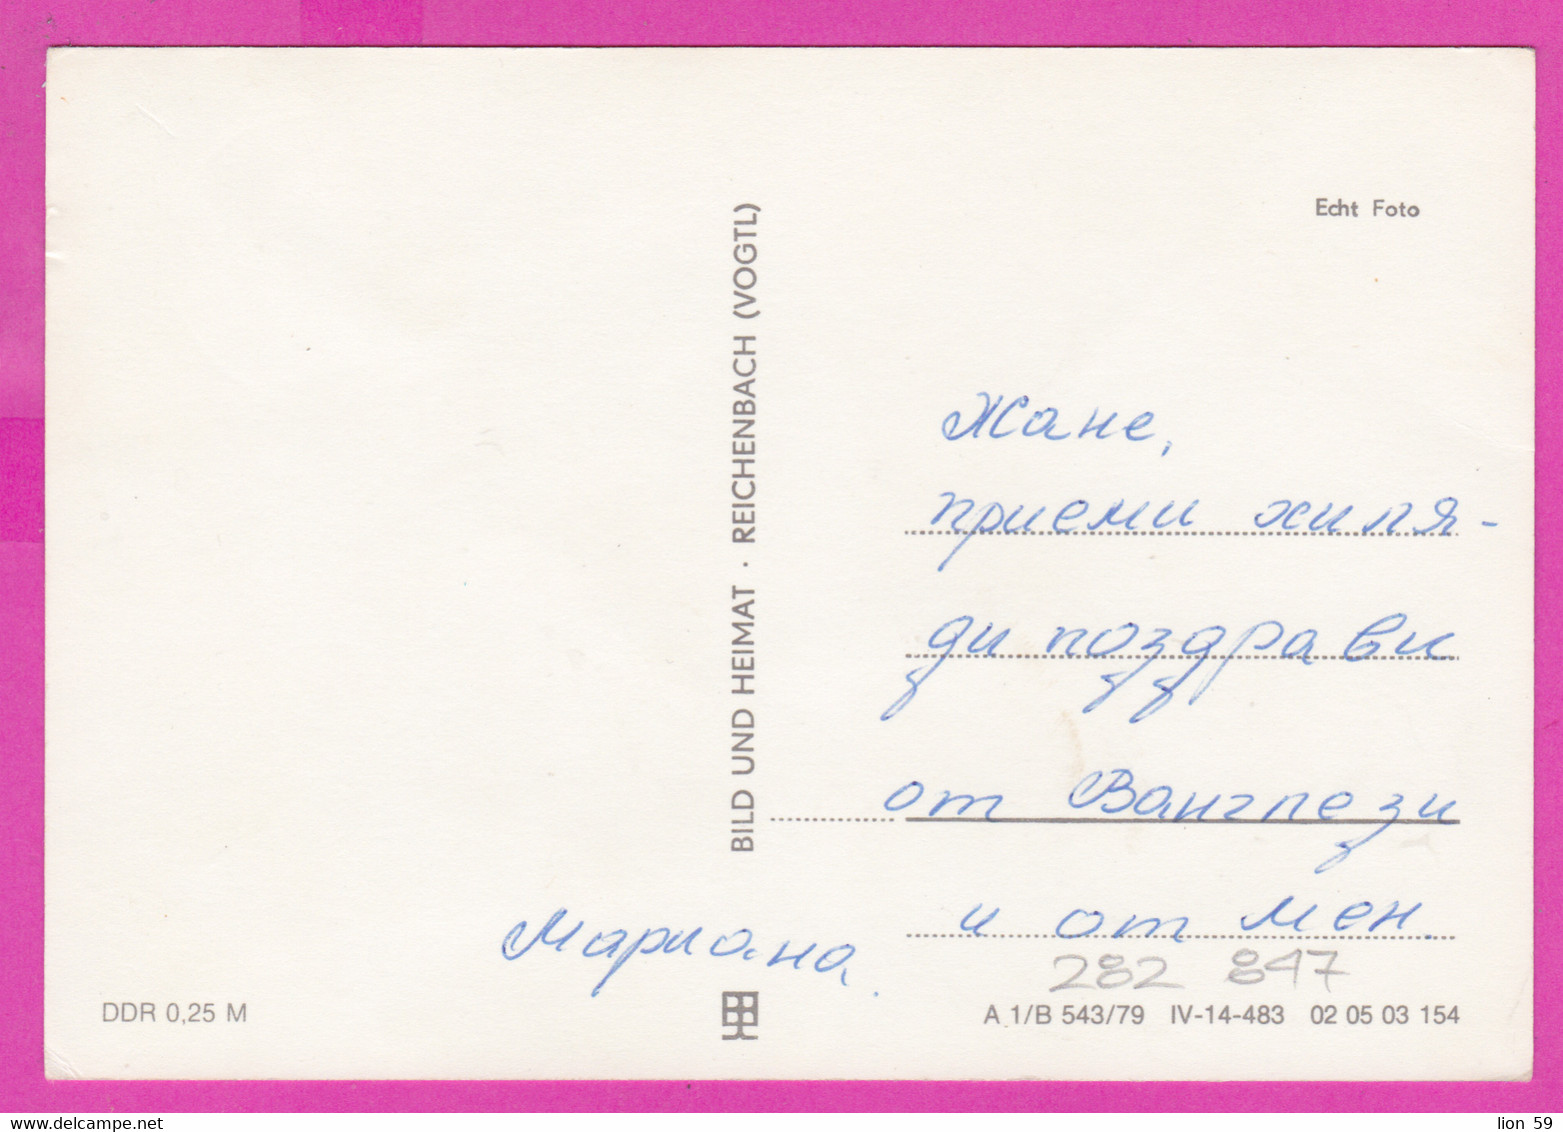 Echt Foto
BILD UND HEIMAT · REICHENBACH (VOGTL)
Жане,
приеми хиля-
ди поздрави
от Вангпези
и от мен.
Мариана.
282 847
DDR 0,25 M
A 1/B 543/79 IV-14-483 02 05 03 154
delcampe.net
lion 59